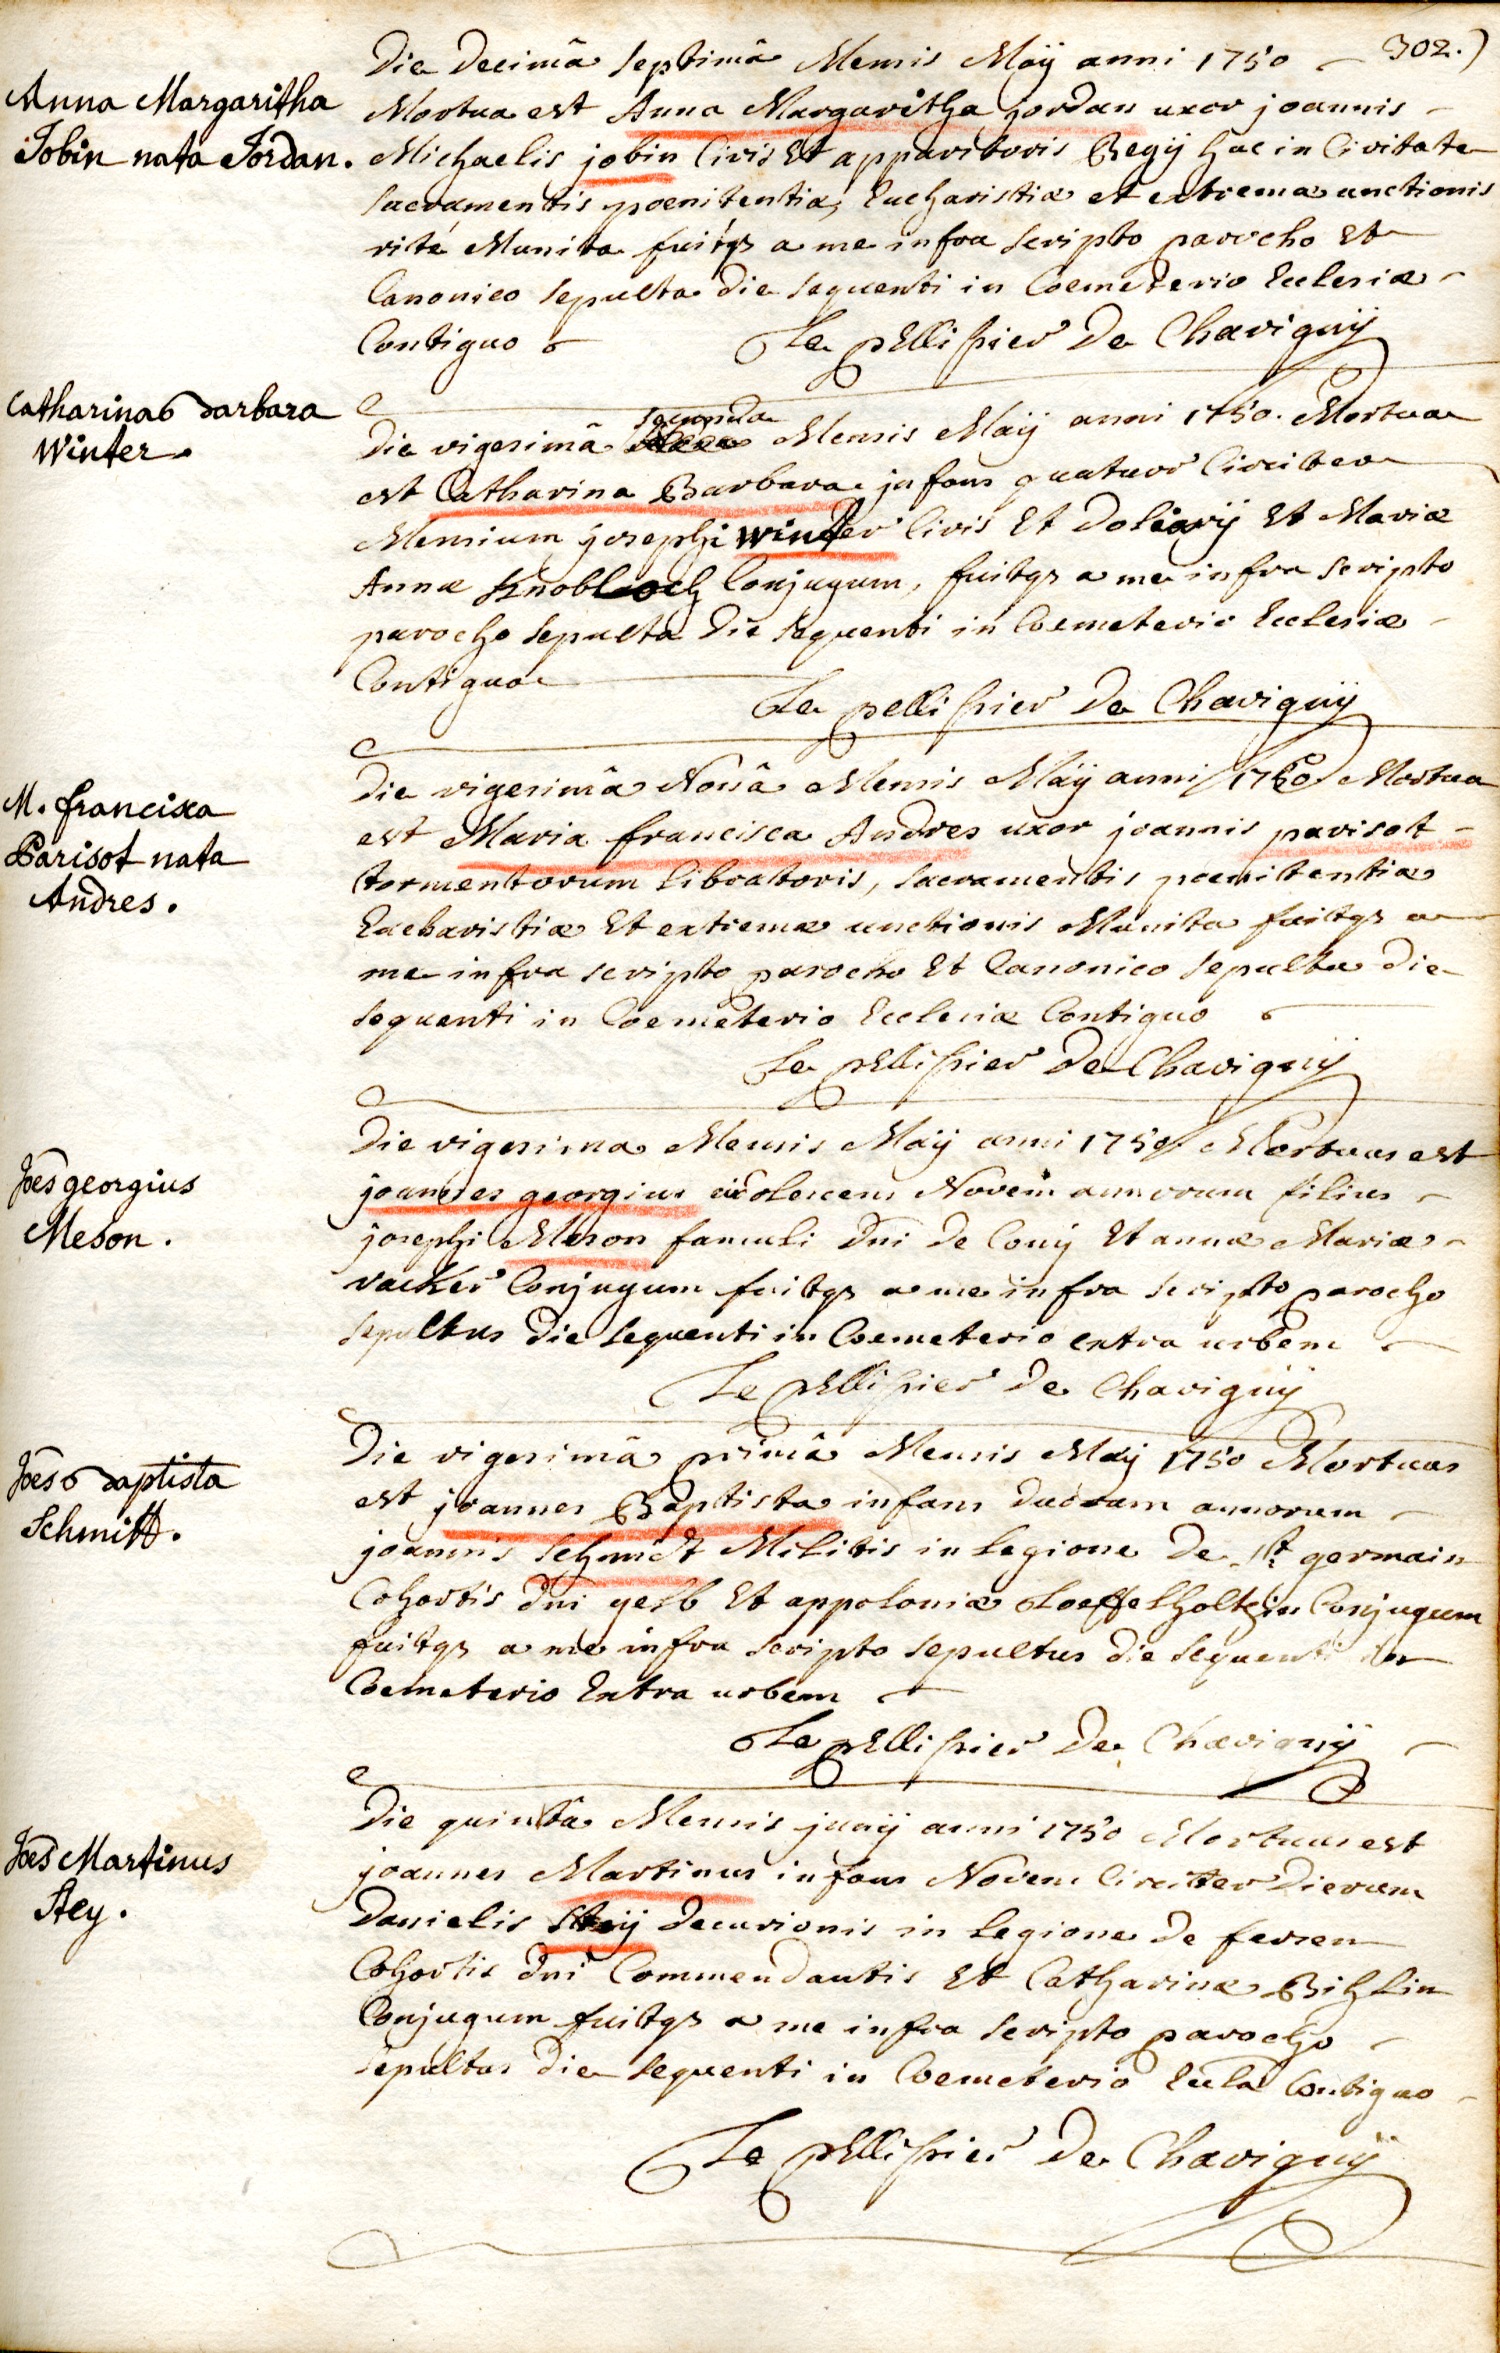 302.)
Anna Margaritha
Jobin nata Jordan.
Die Decimâ Septimâ Mensis Maÿ anni 1750
Mortua est Anna Margaritha jordan uxor joannis
Michaelis jobin Civis Et apparitoris Regÿ hac in Civitate
sacramentis poenitentiæ, Eucharistiæ et extremæ unctionis
rité Munita fuitqz a me infra scripto parocho Et
Canonico sepulta die sequenti in Coemeterio Ecclesiæ
Contiguo
Le pellissier De Chavignÿ
Catharina Barbara
Winter.
Die vigesimâ secunda Mensis Maÿ anni 1750. Mortua
est Catharina Barbara infans quatuor Circiter
Mensium josephi winter Civis Et Doliarÿ Et Mariæ
Annæ Knobloch Conjugum, fuitqz a me infra scripto
parocho sepulta Die sequenti in Coemeterio Ecclesiæ
Contiguo
Le pellissier De Chavignÿ
M. francisca
Parisot nata
Andres.
Die vigesimâ Nonâ Mensis Maÿ anni 1750 Mortua
est Maria francisca Andres uxor joannis parisot
tormentorum libratoris, sacramentis poenitentiæ
Eucharistiæ Et extremæ unctionis Munita fuitqz a
me infra scripto parocho Et Canonico sepulta die
sequenti in Coemeterio Ecclesiæ Contiguo
Le pellissier De Chavignÿ
Joẽs georgius
Meson.
Die vigesima Mensis Maÿ anni 1750 Mortuus est
joannes georgius adolescens Novem annorum filius
josephi Meson famuli Dni de Couÿ Et annæ Mariæ
vacker Conjugum fuitqz a me infra scripto parocho
sepultus die sequenti in Coemeterio extra urbem
Le pellissier De Chavignÿ
Joẽs Baptista
Schmitt.
Die vigesimâ primâ Mensis Maÿ 1750 Mortuus
est joannes Baptista infans duorum annorum
joannis schmidt Militis in legione De st germain
Cohortis dni gelb Et appoloniæ Loeffelholtzin Conjugum
fuitqz a me infra scripto sepultus die sequenti in
Coemeterio Extra urbem
Le pellissier De Chavignÿ
Joẽs Martinus
Stey.
Die quintâ Mensis junÿ anni 1750 Mortuus est
joannes Martinus infans Novem Circiter Dierum
Danielis steÿ Decurionis in legione De fersen
Cohortis dni Commendantis Et Catharinæ Bihlin
Conjugum fuitqz a me infra scripto parocho
sepultus die sequenti in Coemeterio Eccla Contiguo
Le pellissier De Chavignÿ